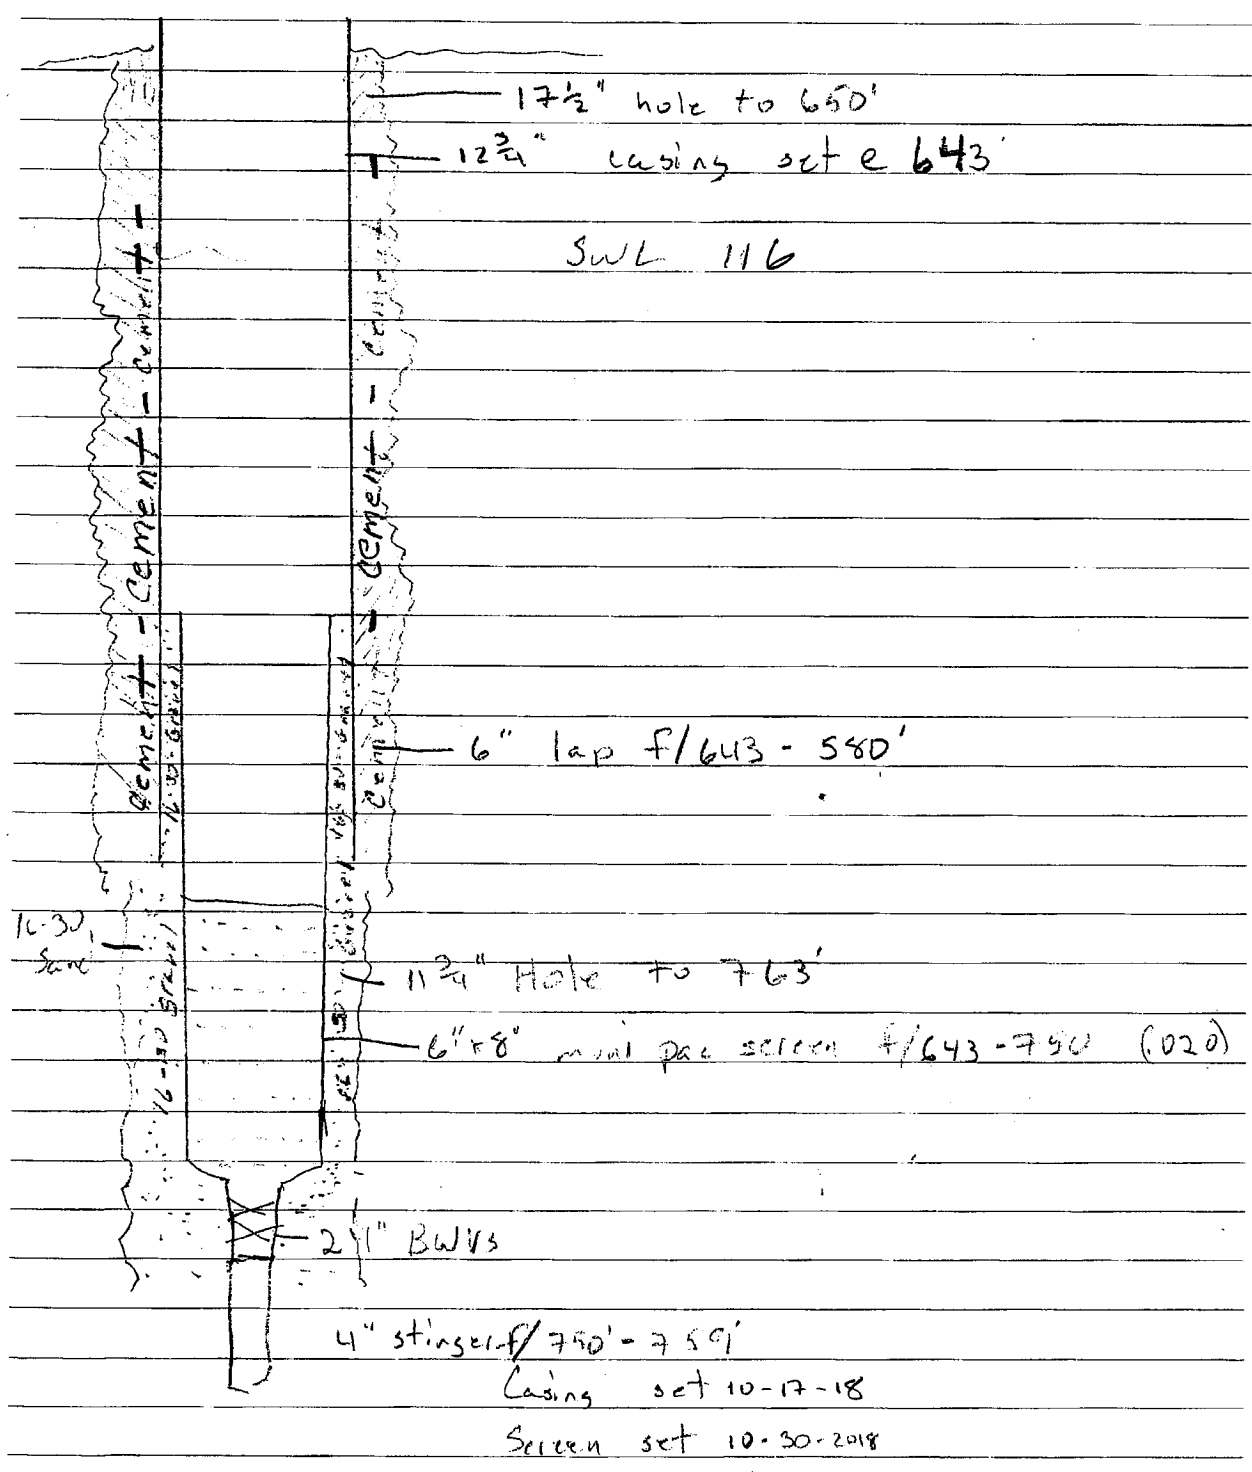 17 1/2" hole to 650'
12 3/4" casing set @ 643'
SWL 116
Cement - Cement - Cement -
Cement - Cement - Cement
16-30 Gravel
6" lap f/643 - 580'
16-30
Sand
16-30 Gravel
11 3/4" Hole to 763'
6" x 8" muni pac screen f/643-750 (.020)
2 1" BWVs
4" stinger f/750' - 759'
Casing set 10-17-18
Screen set 10-30-2018